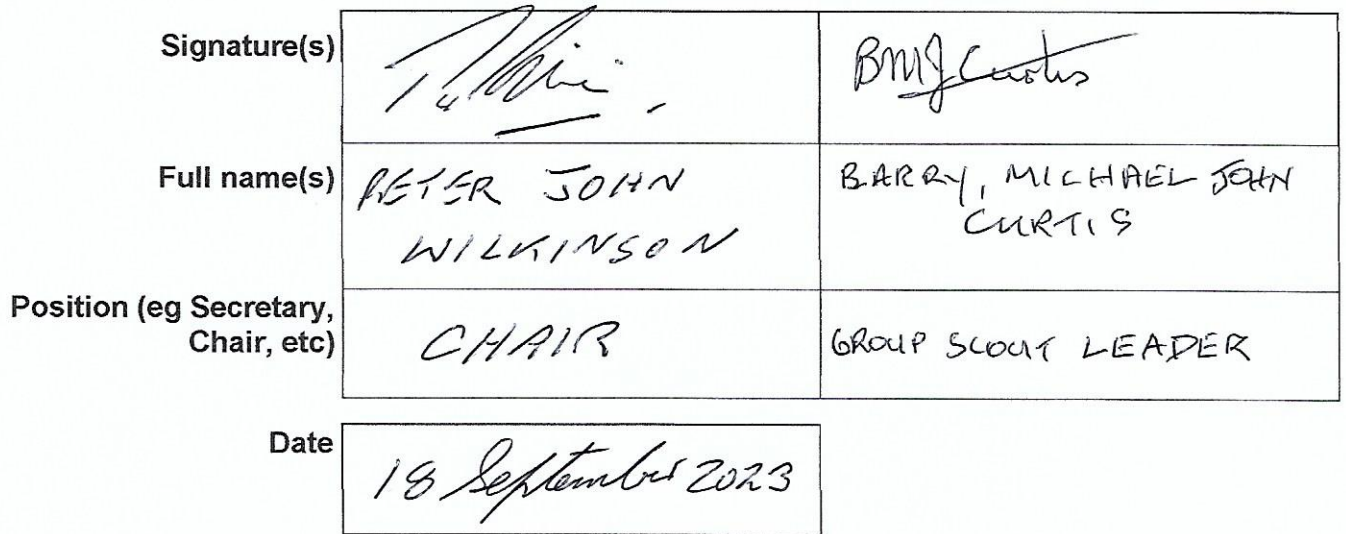 Signature(s)
BMJ Curtis
Full name(s)
PETER JOHN
WILKINSON
BARRY, MICHAEL JOHN
CURTIS
Position (eg Secretary,
Chair, etc)
CHAIR
GROUP SCOUT LEADER
Date
18 September 2023